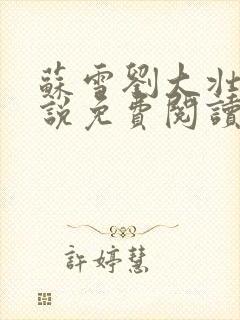 蘇雪劉大壯
說免費閱讀
許婷慧